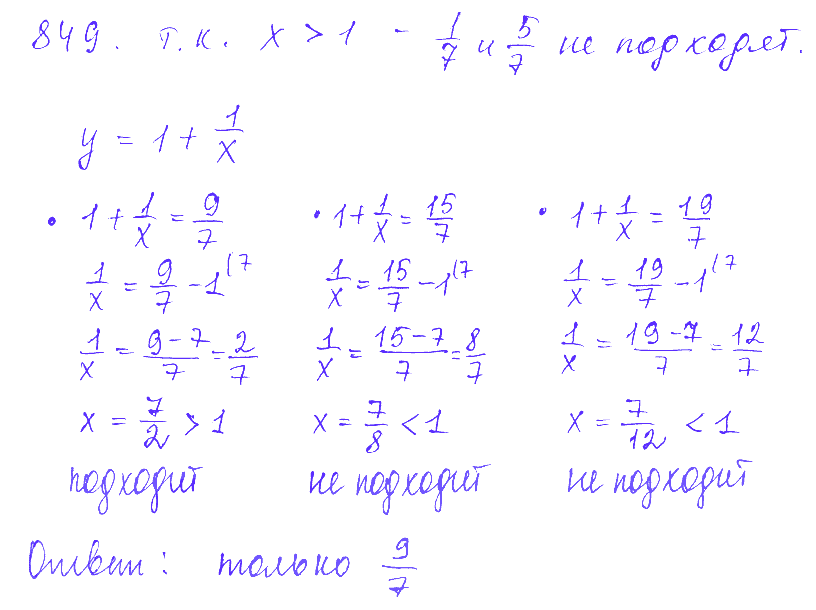 849. т.к. x > 1 - 1/7 и 5/7 не подходят.
y = 1 + 1/x
• 1 + 1/x = 9/7
1/x = 9/7 - 1^(7
1/x = (9-7)/7 = 2/7
x = 7/2 > 1
подходит
• 1 + 1/x = 15/7
1/x = 15/7 - 1^(7
1/x = (15-7)/7 = 8/7
x = 7/8 < 1
не подходит
• 1 + 1/x = 19/7
1/x = 19/7 - 1^(7
1/x = (19-7)/7 = 12/7
x = 7/12 < 1
не подходит
Ответ: только 9/7